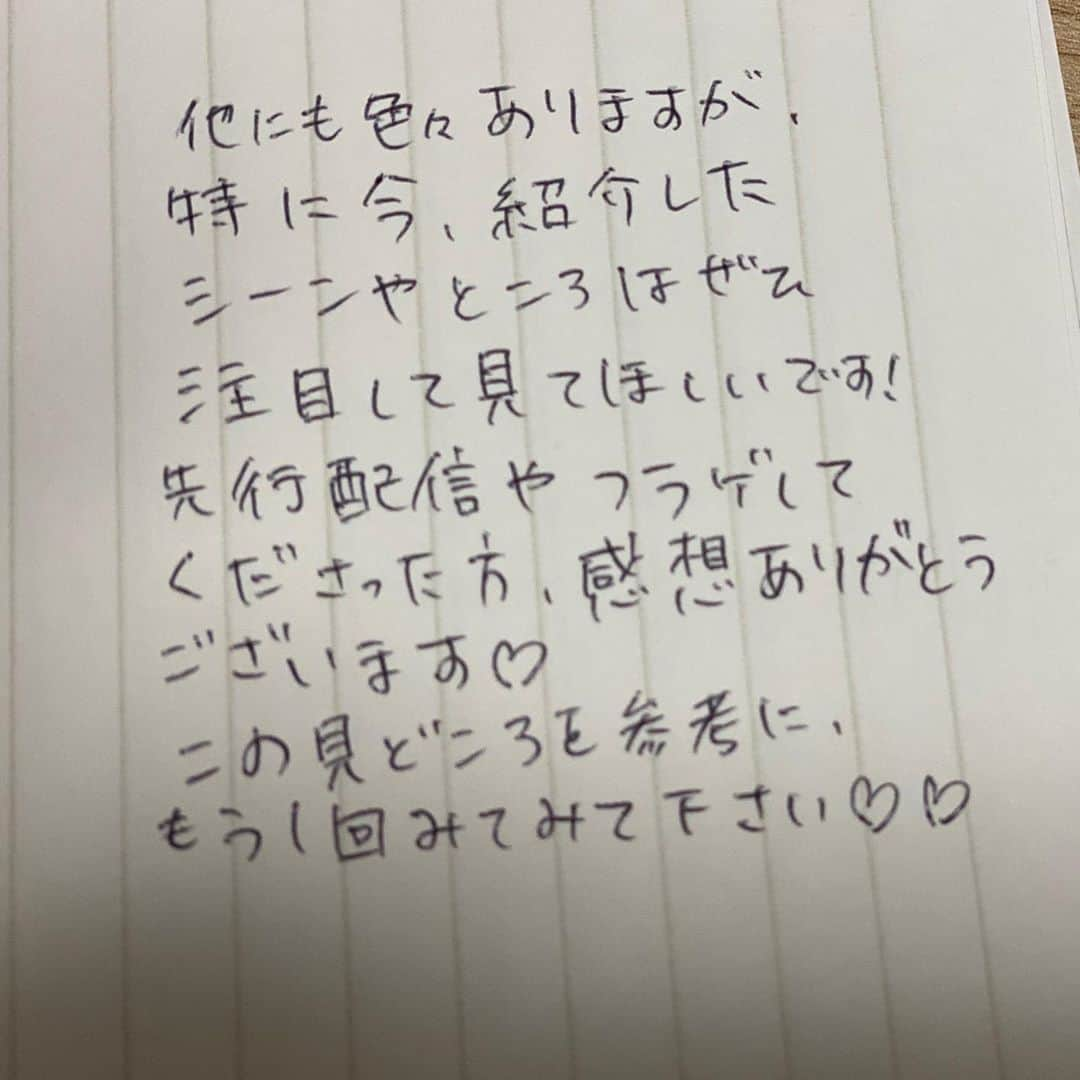 他にも色々ありますが、
特に今、紹介した
シーンやところはぜひ
注目して見てほしいです!
先行配信やフラゲして
くださった方、感想ありがとう
ございます♡
この見どころを参考に、
もう1回みてみて下さい♡♡